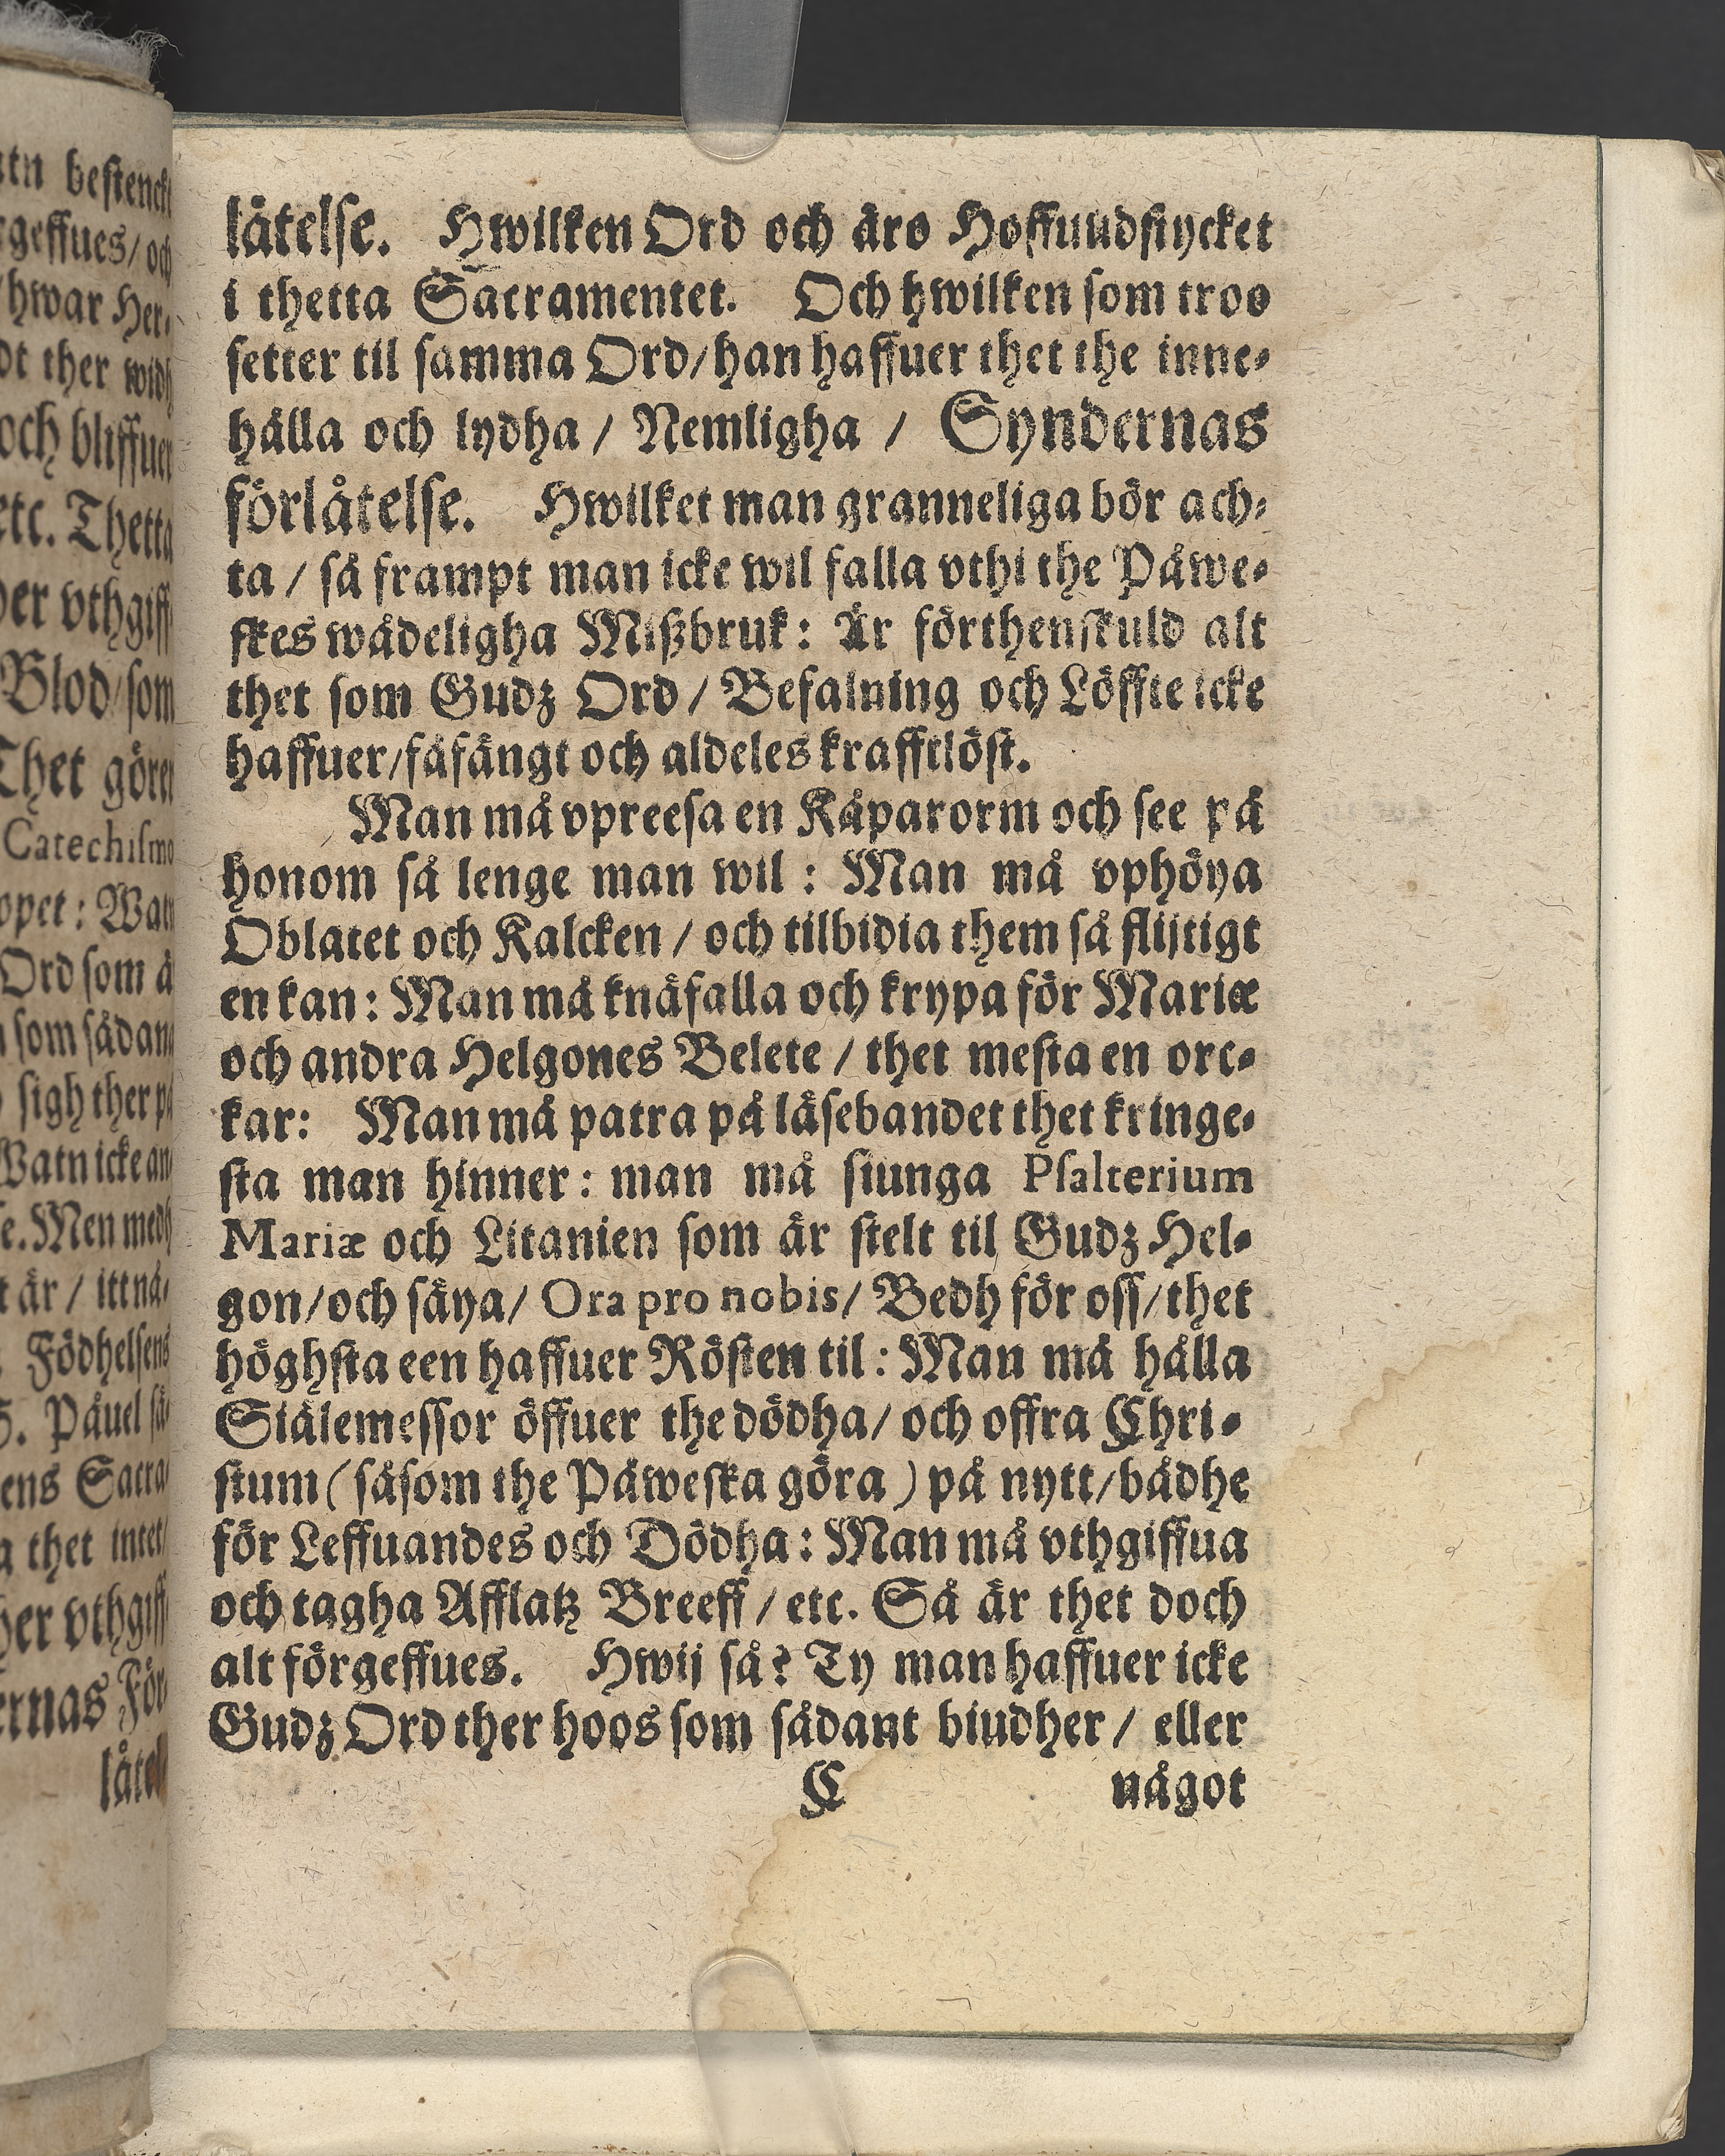 låtelse. Hwilken Ord och äro Hoffuudstycket
i thetta Sacramentet. Och hwilken som troo
setter til samma Ord/han haffuer thet the inne-
hålla och lydha / Nemligha / Syndernas
förlåtelse. Hwilket man granneliga bör ach-
ta / så frampt man icke wil falla vthi the Påwe-
skes wådeligha Mißbruk: Är förthenskuld alt
thet som Gudz Ord/ Befalning och Löffte icke
haffuer/fåfängt och aldeles krafftlöst.
Man må vpreesa en Kåparorm och see på
honom så lenge man wil : Man må vphöya
Oblatet och Kalcken / och tilbidia them så flijtigt
en kan: Man må knäfalla och krypa för Mariæ
och andra Helgones Belete / thet mesta en orc-
kar: Man må patra på läsebandet thet kringe-
sta man hinner: man må siunga Psalterium
Mariæ och Litanien som är stelt til Gudz Hel-
gon/och säya/ Ora pro nobis/ Bedh för oss/thet
höghsta een haffuer Rösten til: Man må hålla
Siälemessor öffuer the dödha/ och offra Chri-
stum (såsom the Påweska göra) på nytt/bådhe
för Leffuandes och Dödha: Man må vthgiffua
och tagha Afflatz Breeff / etc. Så är thet doch
alt förgeffues. Hwij så? Ty man haffuer icke
Gudz Ord ther hoos som sådant biudher/ eller
C något